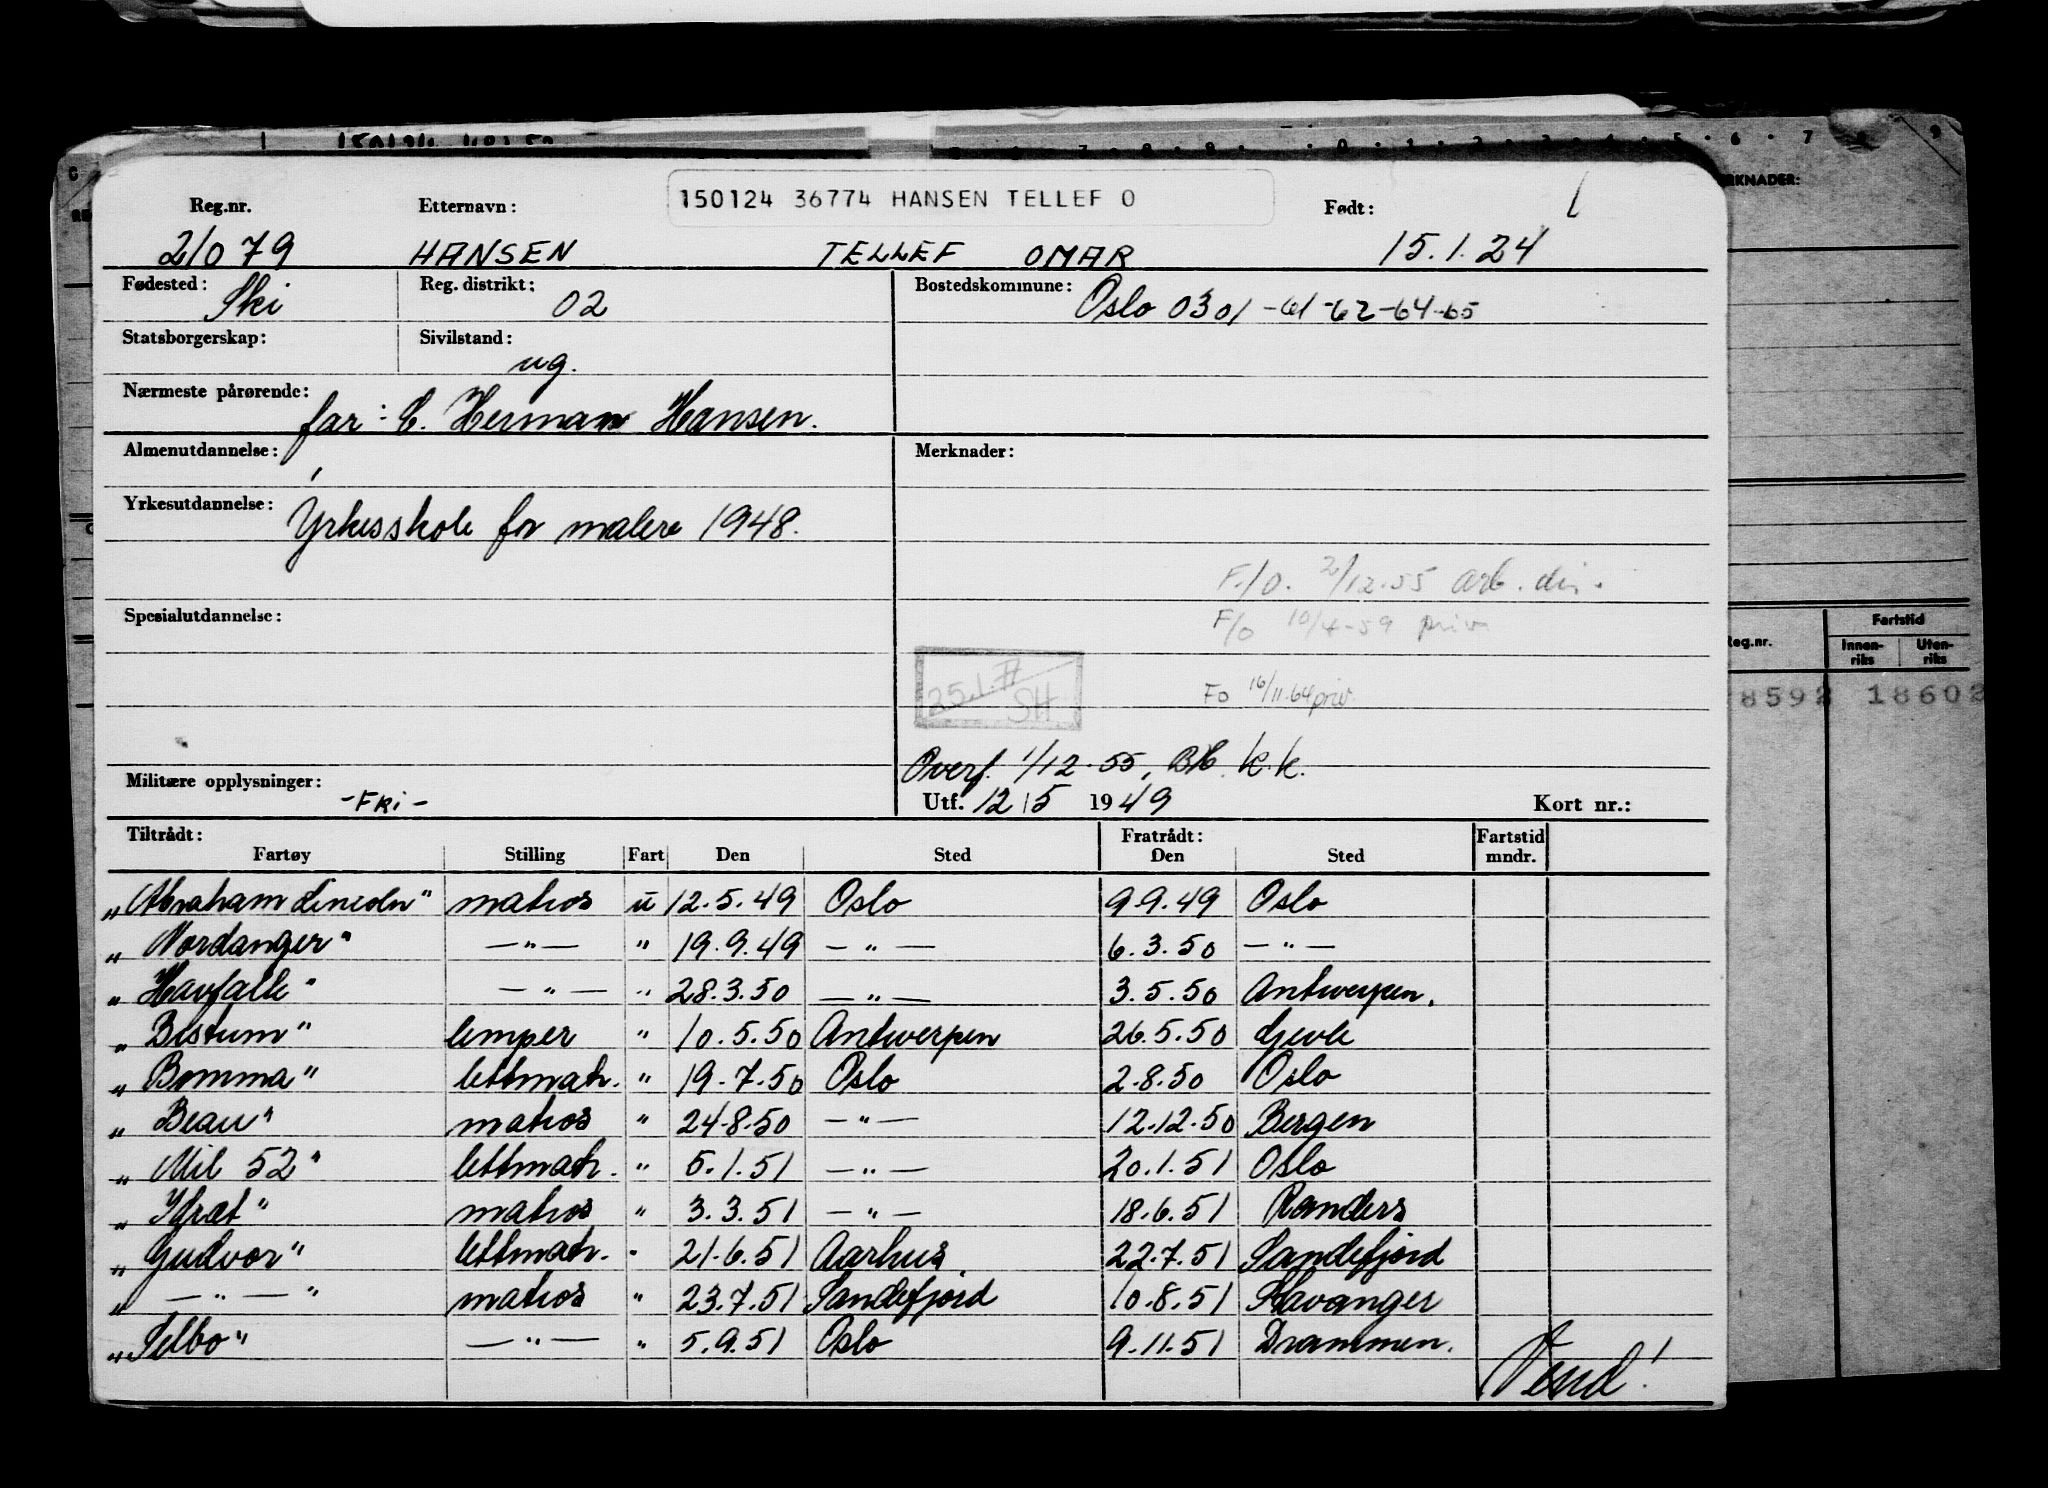 150124 36774 HANSEN TELLEF O
Reg.nr. Etternavn: Født:
21079 HANSEN TELLEF OMAR 15.1.24
Fødested: Ski Reg. distrikt: 02 Bostedskommune: Oslo 0301-61-62-64-65
Statsborgerskap: Sivilstand: ug.
Nærmeste pårørende: far: C. Herman Hansen.
Almenutdannelse: Merknader:
Yrkesutdannelse: Yrkesskole for malere 1948.
F./O. 2/12.55 arb. dir.
Spesialutdannelse: F/o 10/4-59 priv
25.1. SH
Fo 16/11.64 priv.
Overf. 1/12-55, k.k.
Militære opplysninger: -FRI- Utf. 12/5 1949 Kort nr.:
Tiltrådt: Fratrådt: Fartstid
Fartøy Stilling Fart Den Sted Den Sted mndr.
„Abraham Lincoln" matros u 12.5.49 Oslo 9.9.49 Oslo
„Nordanger" —"— " 19.9.49 —"— 6.3.50 —"—
„Havfalk" —"— " 28.3.50 —"— 3.5.50 Antwerpen.
„Bestum" lemper " 10.5.50 Antwerpen 26.5.50 Gevle
„Bomma" lettmatr. " 19.7.50 Oslo 2.8.50 Oslo
„Beau" matros " 24.8.50 —"— 12.12.50 Bergen
„Mil 52" lettmatr. " 5.1.51 —"— 20.1.51 Oslo
„Idræt" matros " 3.3.51 —"— 18.6.51 Randers
„Gudvor" lettmatr. " 21.6.51 Aarhus 22.7.51 Sandefjord
„—"—" matros " 23.7.51 Sandefjord 10.8.51 Stavanger
„Selbo" —"— " 5.9.51 Oslo 9.11.51 Drammen.
Vend!
RKNADER:
Reg.nr. Fartstid
Innen-riks Uten-riks
8592 18602